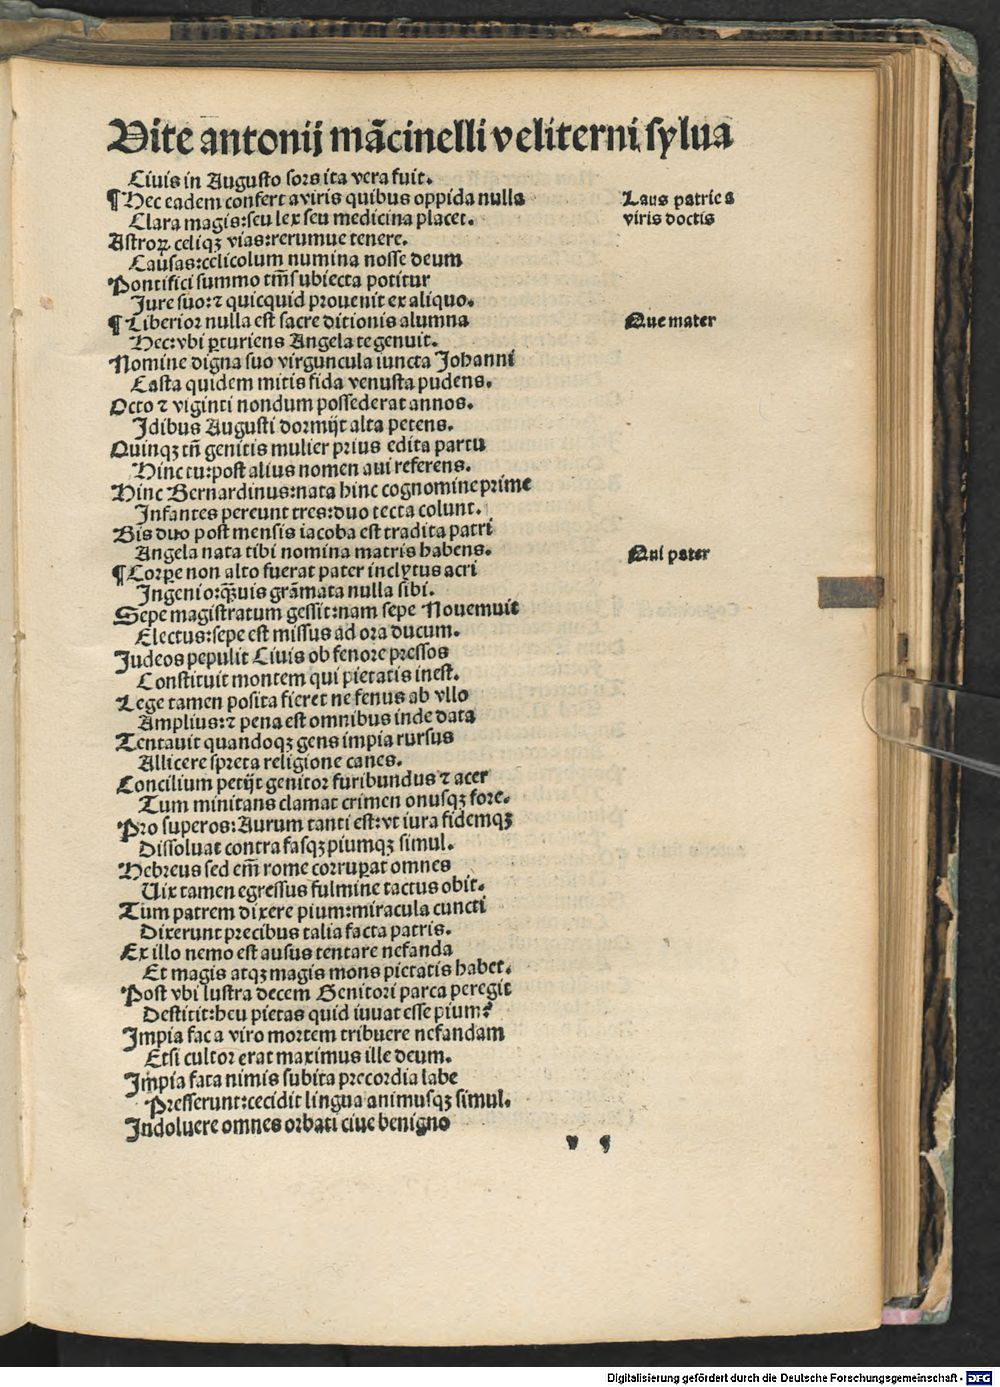 Vite antonij mãcinelli veliterni sylua
Ciuis in Augusto sors ita vera fuit.
¶ Hec eadem confert a viris quibus oppida nulla
Laus patrie a
Clara magis: seu lex seu medicina placet.
viris doctis
Astroꝝ celiqꝫ vias: rerumue tenere.
Causas: celicolum numina nosse deum
Pontifici summo tm̃ subiecta potitur
Jure suo: ⁊ quicquid prouenit ex aliquo.
¶ Liberior nulla est sacre ditionis alumna
Que mater
Hec: vbi ꝑturiens Angela te genuit.
Nomine digna suo virguncula iuncta Johanni
Casta quidem mitis fida venusta pudens.
Octo ⁊ viginti nondum possederat annos.
Idibus Augusti dormijt alta petens.
Quinqꝫ tñ genitis mulier prius edita partu
Hinc tu: post alius nomen aui referens.
Hinc Bernardinus: nata hinc cognomine prime
Infantes pereunt tres: duo tecta colunt.
Bis duo post mensis iacoba est tradita patri
Angela nata tibi nomina matris habens.
Qui pater
¶ Corꝑe non alto fuerat pater inclytus acri
Ingenio: qꝫuis grãmata nulla sibi.
Sepe magistratum gessit: nam sepe Nouemuir
Electus: sepe est missus ad ora ducum.
Judeos pepulit Ciuis ob fenore pressos
Constituit montem qui pietatis inest.
Lege tamen posita fieret ne fenus ab vllo
Amplius: ⁊ pena est omnibus inde data
Tentauit quandoqꝫ gens impia rursus
Allicere spreta religione canes.
Concilium petijt genitor furibundus ⁊ acer
Tum minitans clamat crimen onusqꝫ fore.
Pro superos: Aurum tanti est: vt iura fidemqꝫ
Dissoluat contra fasqꝫ piumqꝫ simul.
Hebreus sed em̃ rome corruꝑat omnes
Uix tamen egressus fulmine tactus obit.
Tum patrem dixere pium: miracula cuncti
Dixerunt precibus talia facta patris.
Ex illo nemo est ausus tentare nefanda
Et magis atqꝫ magis mons pietatis habet.
Post vbi lustra decem Genitori parca peregit
Destitit: heu pietas quid iuuat esse pium?
Impia fac a viro mortem tribuere nefandam
Etsi cultor erat maximus ille deum.
Impia fata nimis subita precordia labe
Presserunt: cecidit lingua animusqꝫ simul.
Indoluere omnes orbati ciue benigno
Digitalisierung gefördert durch die Deutsche Forschungsgemeinschaft - DFG